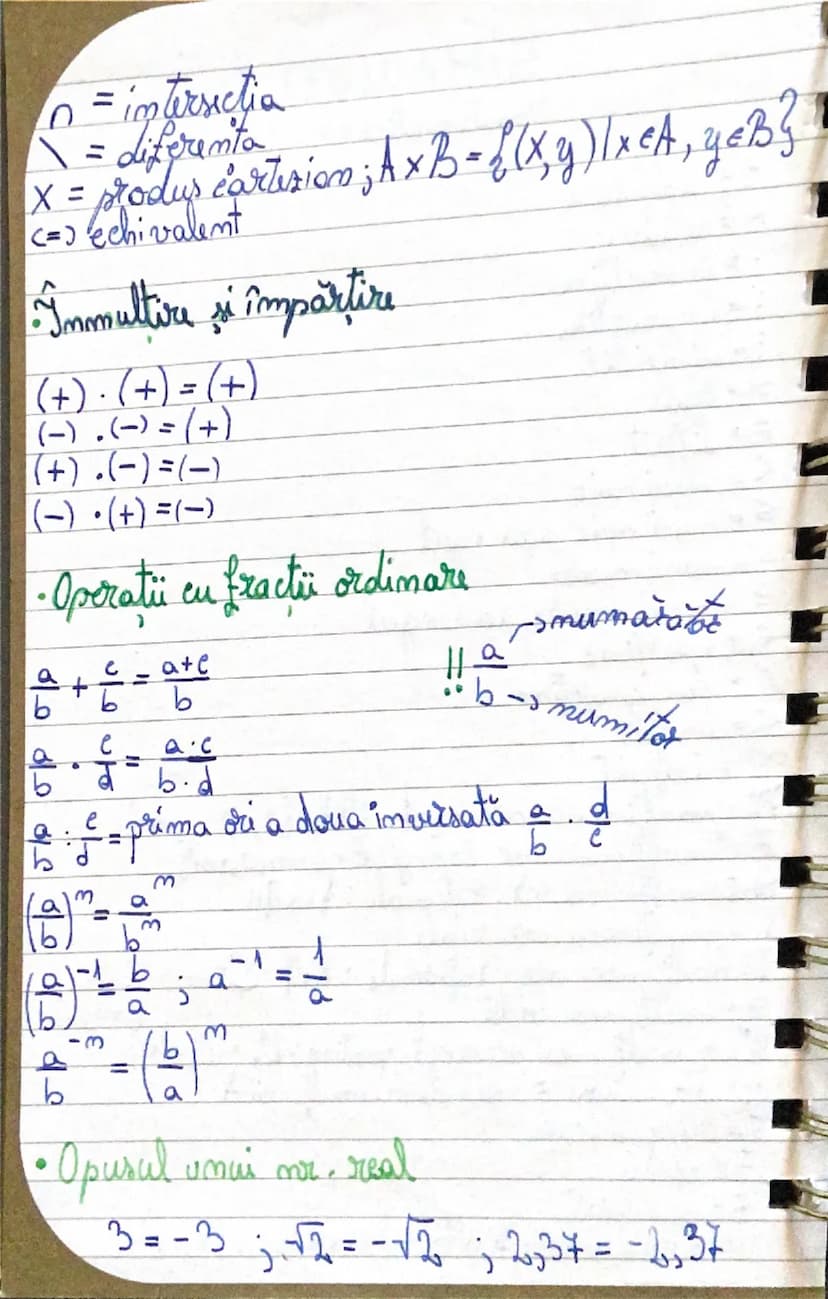 ∩ = intersecția
\ = diferența
X = produs cartezian ; A x B = {(x,y) | x ∈ A, y ∈ B}
<=> echivalent
• Înmulțire și împărțire
(+) · (+) = (+)
(-) · (-) = (+)
(+) · (-) = (-)
(-) · (+) = (-)
• Operații cu fracții ordinare
a/b + c/b = (a+c)/b
!! a/b
a → numărător
b → numitor
a/b · c/d = (a·c)/(b·d)
a/b : c/d = prima ori a doua inversată a/b · d/c
(a/b)^n = a^n/b^n
(a/b)^-1 = b/a ; a^-1 = 1/a
a/b^-n = (b/a)^n
• Opusul unui nr. real
3 = -3 ; √2 = -√2 ; 2,37 = -2,37